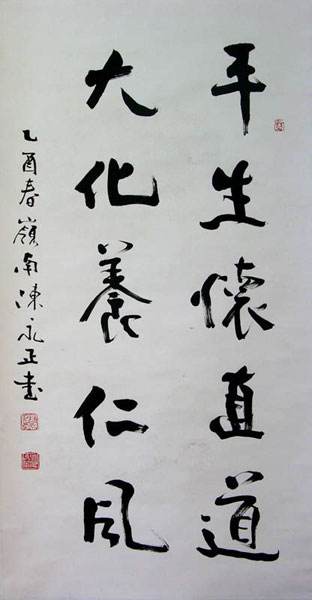 平生懷直道
大化養仁風
乙酉春嶺南陳永正書